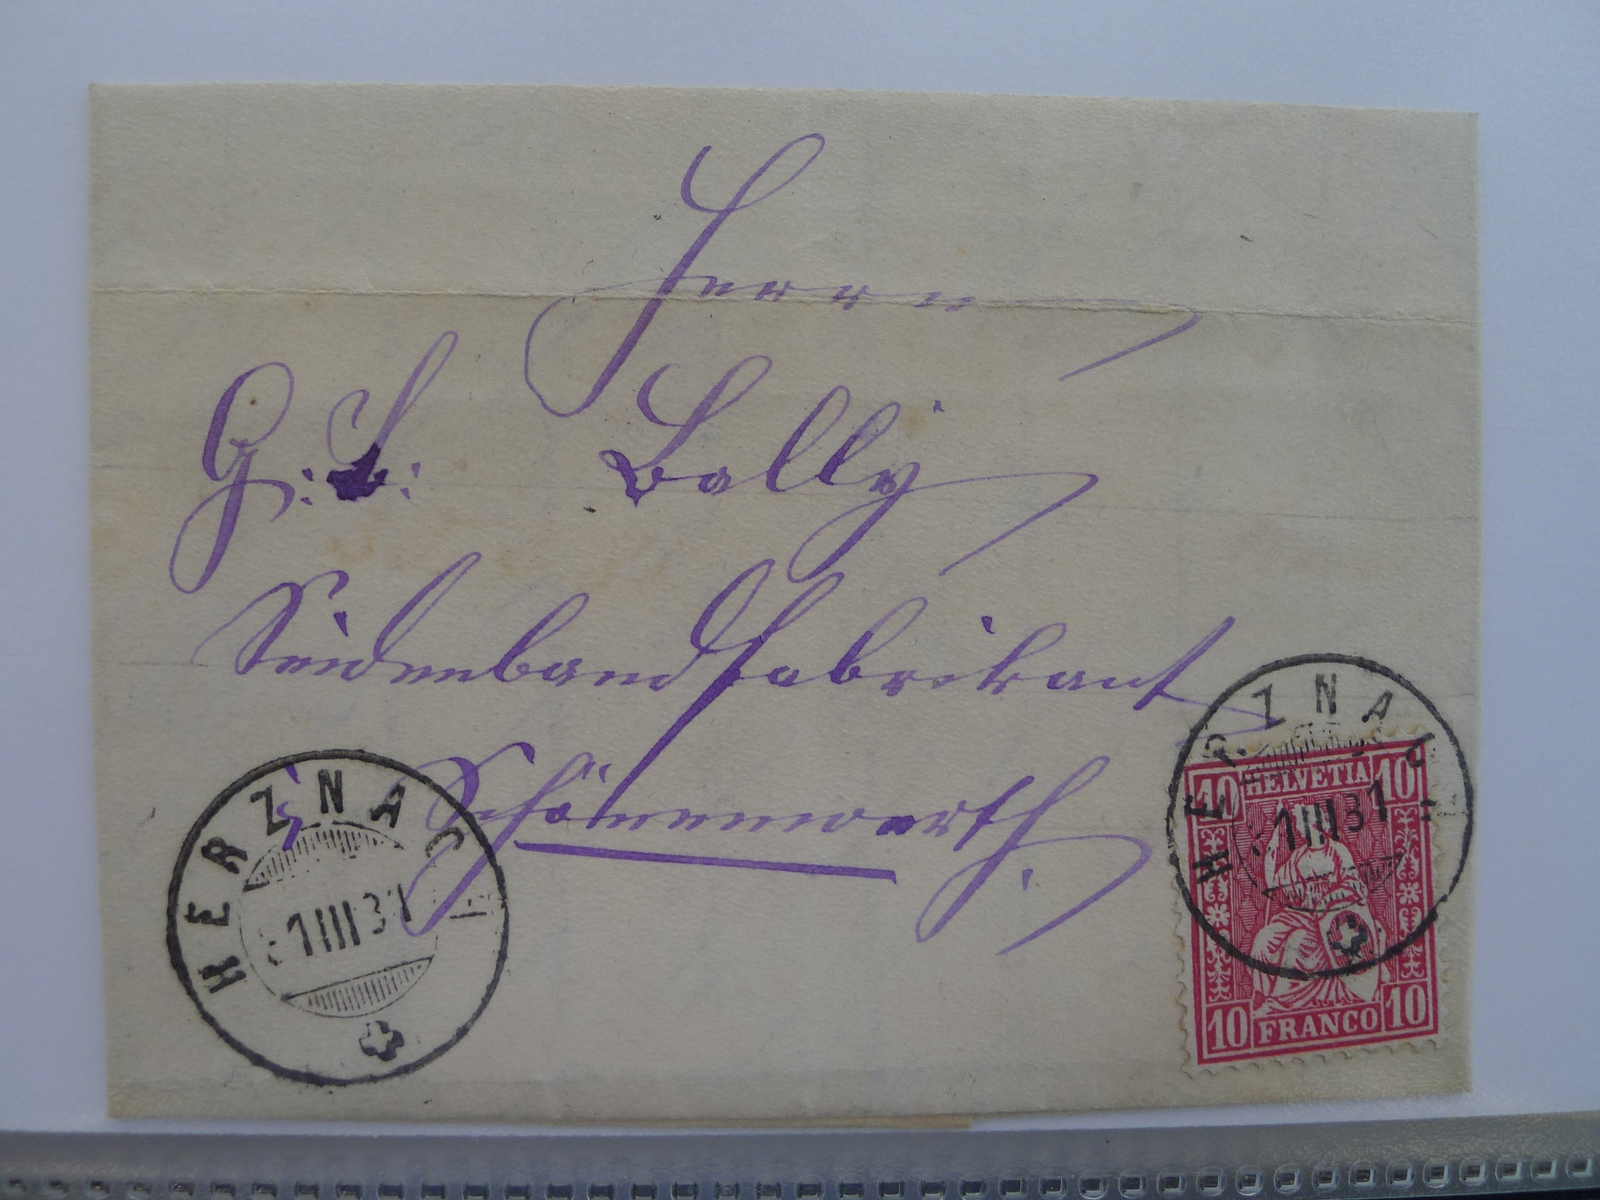 Herrn
G: L: Bally
Seidenbandfabrikant
Schönenwerth.
HERZNACH
1 III 81
HERZNACH
1 III 81
10 HELVETIA 10
10 FRANCO 10